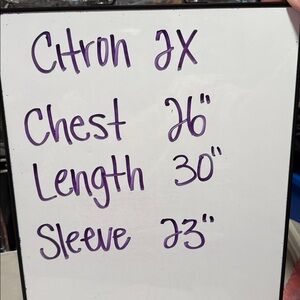 Citron 2X
Chest 26"
Length 30"
Sleeve 23"